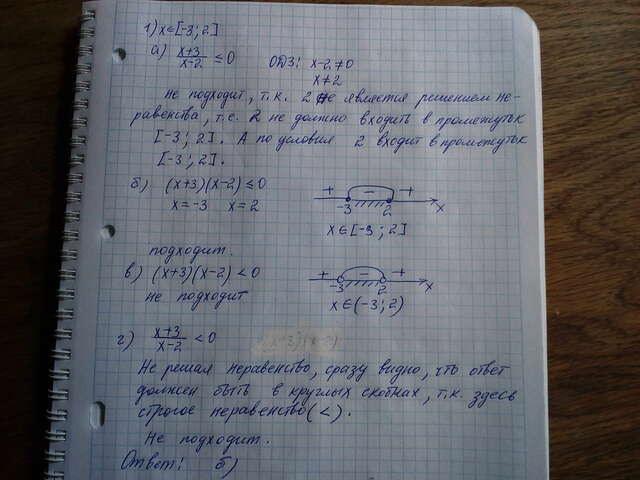 1) x∈[-3; 2]
а) (x+3)/(x-2) ≤ 0 ОДЗ: x-2≠0
x≠2
не подходит, т.к. 2 не является решением не-
равенства, т.е. 2 не должно входить в промежуток
[-3; 2]. А по условия 2 входит в промежуток
[-3; 2].
б) (x+3)(x-2) ≤ 0 + - +
x=-3 x=2 -3 2 x
x∈[-3; 2]
подходит.
в) (x+3)(x-2) < 0 + - +
не подходит -3 2 x
x∈(-3; 2)
г) (x+3)/(x-2) < 0
Не решал неравенство, сразу видно, что ответ
должен быть в круглых скобках, т.к. здесь
строгое неравенство (<).
Не подходит.
Ответ: б)